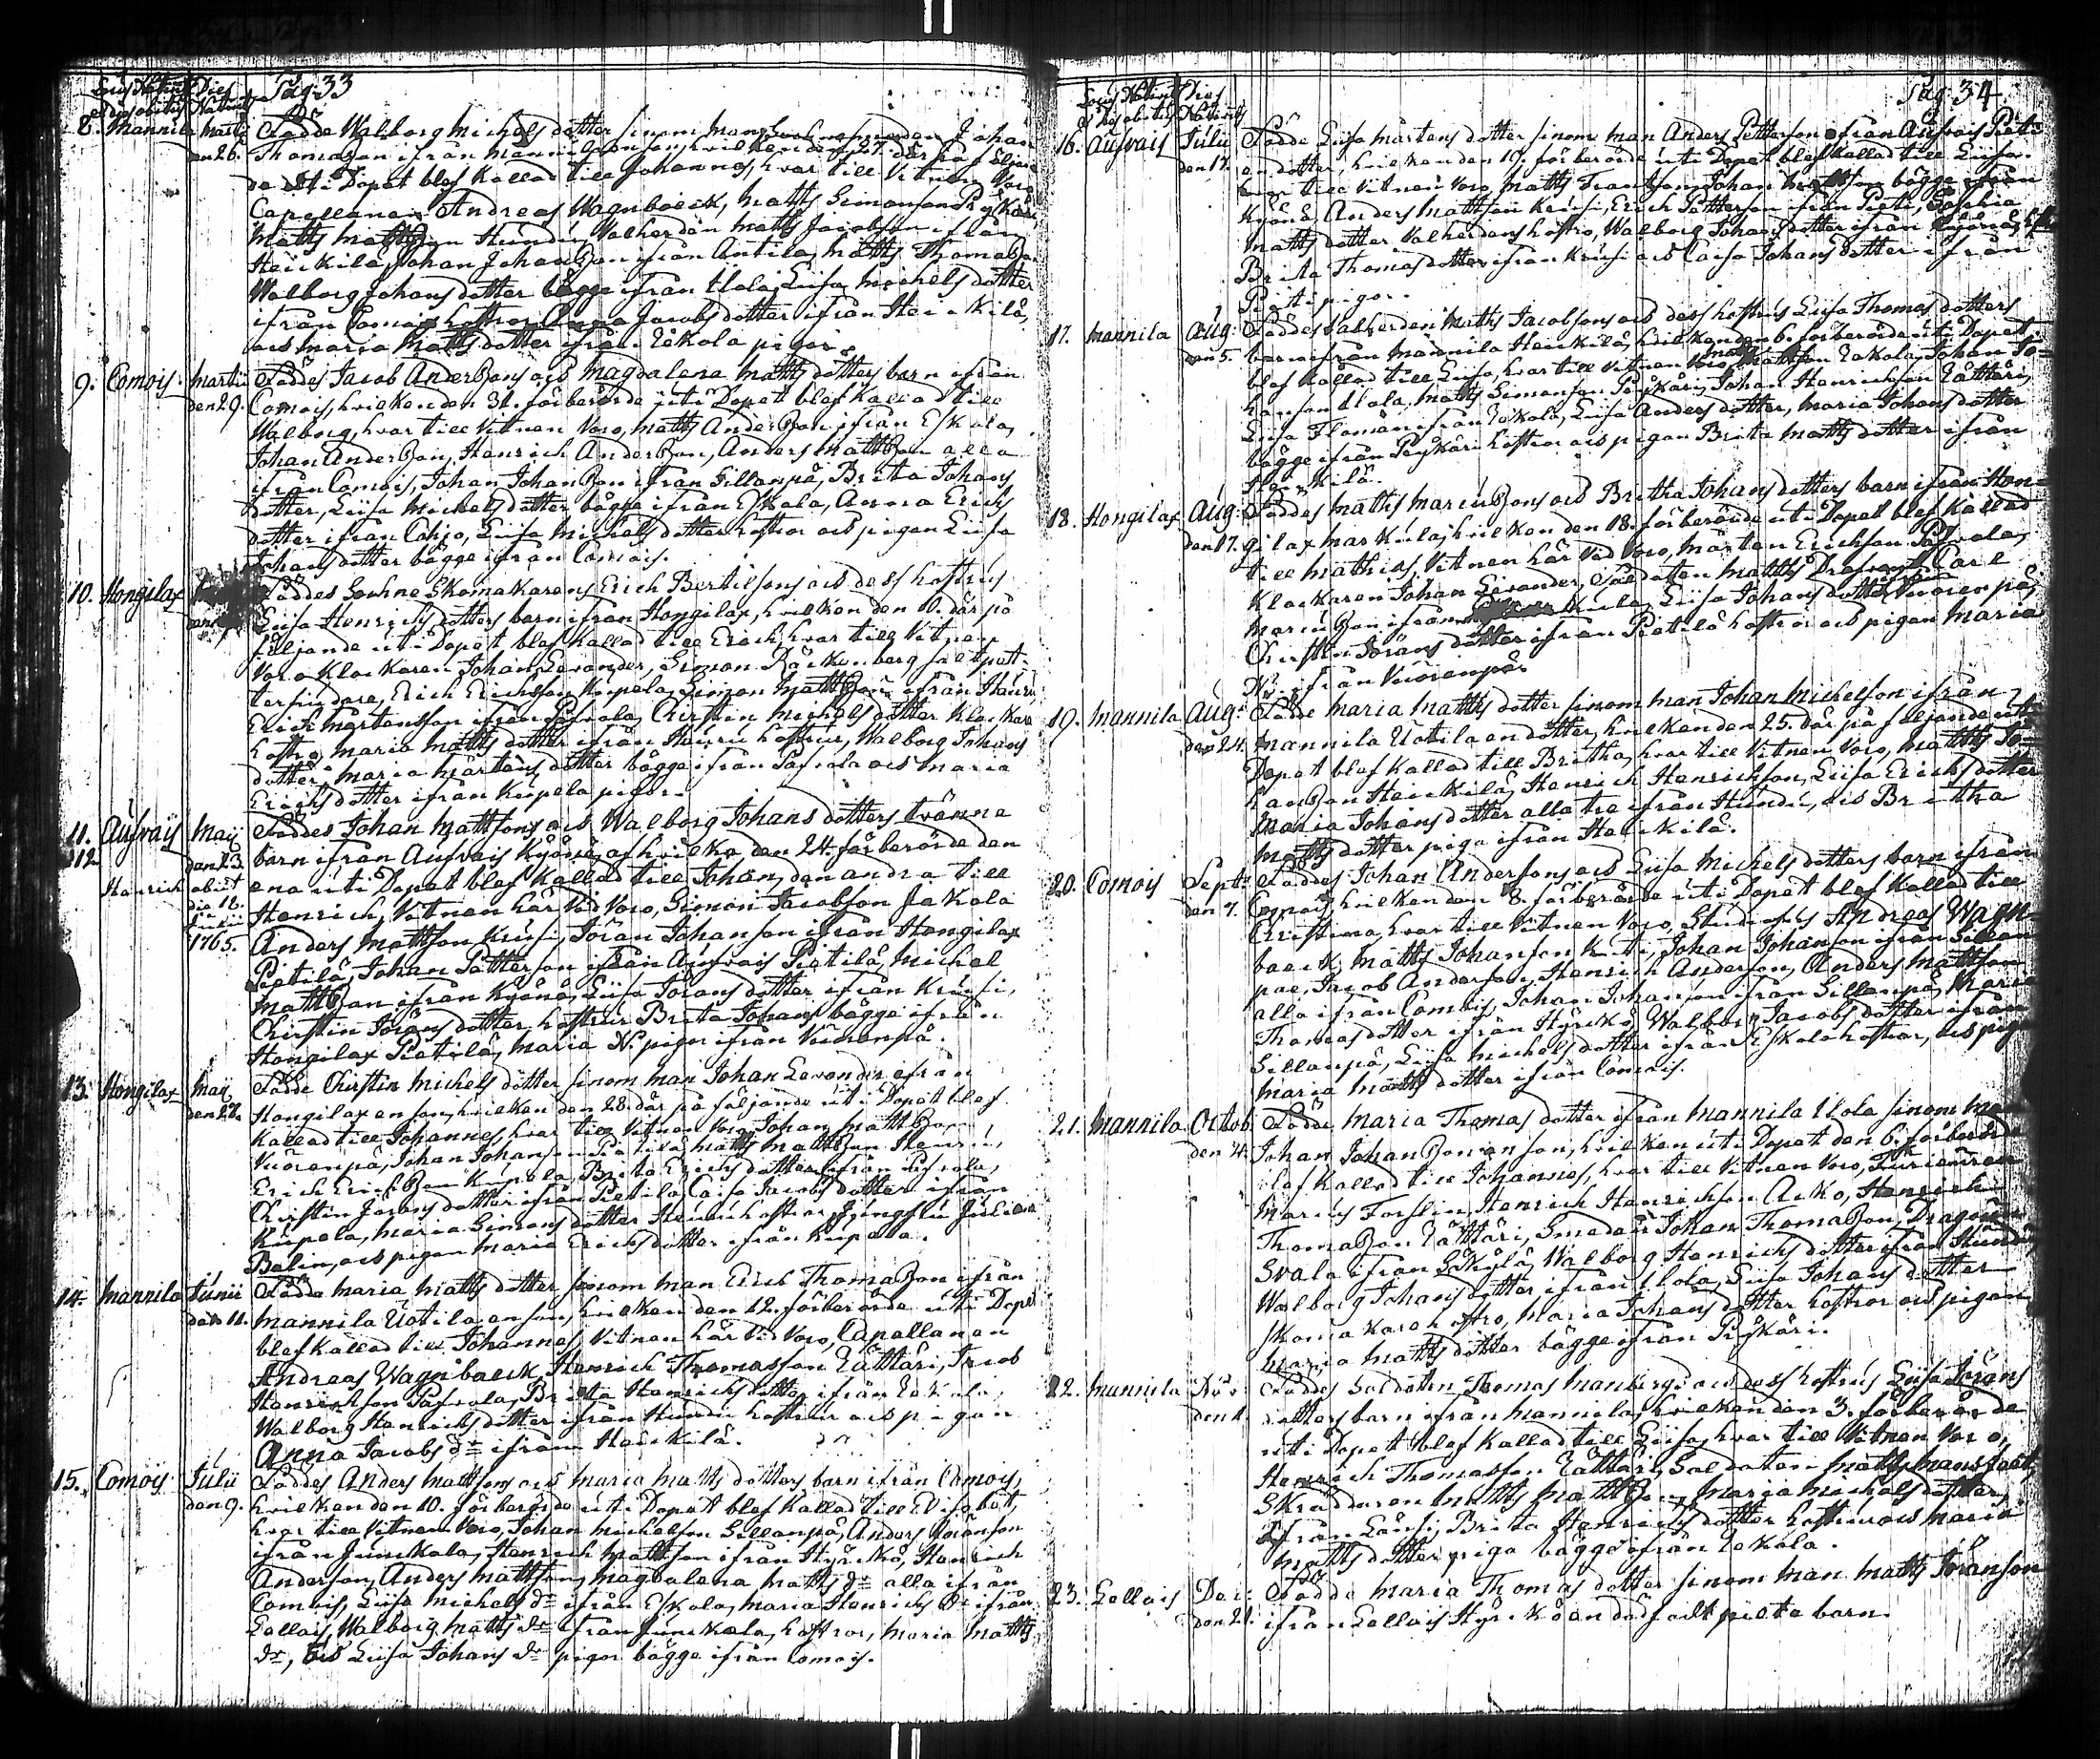 Pag: 33
Dies
8. Mannila Martij Födde Walborg Michels dotter sinom man
den 26. Thomasson ifrån Manni en son, hvilken den 27. der på följan
de uti Dopet blef kallad till Johannes, hvar till Vitnen Voro
Capellanen Andreas Wagnbaeck, Matts Simonson Pyskäri,
Matts Mattsson Hundu, Valherden Matts Jacobson ifrån
Heickilä, Johan Johansson ifrån Antila, Matts Thomasson
Walborg Johans dotter bägge ifrån Ulola, Liisa Michels dotter
ifrån Comois hustror Anna Jacobs dotter ifrån Heickilä,
och Maria Matts dotter ifrån Eskola pigor.
9. Comois. Martii Föddes Jacob Anderssons och Magdalena Matts dotters barn ifrån
den 29. Comois, hvilken den 31. förberörde uti Dopet blef kallad till
Walborg, hvar till Vitnen Voro, Matts Andersson ifrån Eskola,
Johan Andersson, Henrich Andersson, Anders Mattsson alla
ifrån Comois, Johan Johansson ifrån Sillanpä, Brita Johans
dotter, Liisa Michels dotter bägge ifrån Eskola, Anna Erichs
dotter ifrån Cohjo, Liisa Michels dotter hustror och pigan Liisa
Johans dotter bägge ifrån Comois.
10. Hongilax Föddes Sochne Skomakarens Erich Bertilsons och dess hustrus
Liisa Henrichs dotters barn ifrån Hongilax, hvilken den 10. der på
följande uti Dopet blef kallad till Erich, hvar till Vitnen
Voro Klockaren Johan Levander, Simon Räickonberg saltpet-
tersiudare, Erich Erichsson Knipela, Simon Mattsson ifrån Haurú,
Erich Mårtensson ifrån Påfvola, Christin Michels dotter Klockare
hustro, Maria Matts dotter ifrån Haurú hustrur, Walborg Johans
dotter, Maria Mårtens dotter bägge ifrån Påfvola och Maria
Erichs dotter ifrån Knipela pigor.
11. Aufvais Maij Föddes Johan Mattsons och Walborg Johans dotters tvänne
12. den 23. barn ifrån Aufvais Kyönä, af hvilka den 24. förberörde den
Henrich obiit ena uti Dopet blef kallad till Johan, den andra till
die 18. Henrich, Vitnen här vid Voro, Simon Jacobson Jakola
1765. Anders Mattson Krusi, Jöran Johanson ifrån Hongilax
Pietilä, Johan Petterson ifrån Aufvais Pietilä, Michel
Mattsson ifrån Kyönä, Liisa Jörans dotter ifrån Krusi,
Christin Jörans dotter, hustrur Brita Johans bägge ifrån
Hongilax Pietilä, Maria N. pigor ifrån Vuorenpä.
13. Hongilax Maij Födde Christin Michels dotter sinom man Johan Levander ifrån
den 27. Hongilax en son, hvilken den 28. der på följande uti Dopet blef
kallad till Johannes, hvar till Vitnen Voro Johan Mattsson
Vuorenpä, Johan Johanson Pietilä, Matts Mattsson Heurú,
Erich Ericsson Knipela, Brita Erichs dotter ifrån Påfvola,
Christin Jörans dotter ifrån Pietilä, Caisa Jacobs dotter ifrån
Knipela, Maria Simons dotter Heurú hustror, Jungfru Juliana
Balin, och pigan Maria Erichs dotter ifrån Knipela.
14. Mannila Junii Födde Maria Matts dotter sinom man Erich Thomasson ifrån
den 11. Mannila Uotila en son, hvilken den 12. förberörde uti Dopet
blef kallad till Johannes, Vitnen här vid Voro, Capellanen
Andreas Wagnbaeck, Henrich Thomasson Lättäri, Jacob
Henrichson Påfvola, Brita Henrichs dotter ifrån Eskola,
Walborg Henrichs dotter ifrån Hundu hustrur och pigan
Anna Jacobs dr ifrån Heickilä.
15. Comois Julii Föddes Anders Mattsons och Maria Matts dotters barn ifrån Comois,
den 9. hvilken den 10. förberörde uti Dopet blef kallad till Elisabet,
hvar till Vitnen Voro, Johan Michelson Sillanpä, Anders Göranson
ifrån Junckola, Henrich Mattson ifrån Hyrckö, Henrich
Anderson, Anders Mattson, Magdalena Matts dr alla ifrån
Comois, Liisa Michels dr ifrån Eskola, Maria Henrichs dr ifrån
Lellais, Walborg Matts dr ifrån Junckola, hustror, Maria Matts
dr, och Liisa Johans dr pigor bägge ifrån Comois.
Pag: 34
Dies
16. Aufvais Julii Födde Liisa Mårtens dotter sinom man Anders Petterson ifrån Aufvais Pieti-
den 17. en dotter, hvilken den 19. förberörde uti Dopet blef kallad till Liisa.
hvar till Vitnen Voro, Matts Frantsson, Johan bägge ifrån
Kyönä, Anders Mattson Krusi, Erich Petterson ifrån Pieti, Sophia
Matts dotter Valherdens hustro, Walborg Johans dotter ifrån Kyönä,
Brita Thomas dotter ifrån Krusi och Caisa Johans dotter ifrån
Pieti pigor.
17. Mannila Aug: Föddes Valherden Matts Jacobsons och dess hustrus Liisa Thomas dotters
den 5. barn ifrån Mannila Heickilä, hvilken den 6. förberörde uti Dopet
blef kallad till Liisa, hvar till Vitnen Voro, Eskola, Johan Jo=
hanson Ulola, Matts Simonson Pyskäri, Johan Henrichson Lättäri,
Liisa Floman ifrån Eskola, Liisa Anders dotter, Maria Johans dotter
bägge ifrån Pyskäri hustror och pigan Brita Matts dotter ifrån
Heickilä.
18. Hongilax Aug: Föddes Matts Marcussons och Britha Johans dotters barn ifrån Hon=
den 17. gilax Markula, hvilken den 18. förberörde uti Dopet blef kallad
till Mathias, Vitnen här vid Voro, Mårten Erichson Påfvola,
Klockaren Johan Levander, Soldaten Matts Carl
Marcusson ifrån kula, Liisa Johans dotter Vuorenpä,
Christin Jörans dotter ifrån Pietilä hustror och pigan Maria
N. ifrån Vuorenpä.
19. Mannila Aug: Födde Maria Matts dotter sinom man Johan Michelson ifrån
den 24. Mannila Uotila en dotter, hvilken den 25. der på följande uti
Dopet blef kallad till Britha, hvar till Vitnen Voro, Matts Jo=
hansson Heickilä, Henrich Henrichson, Liisa Erichs dotter
Maria Johans dotter alla tre ifrån Hundu, och Britha
Matts dotter piga ifrån Heickilä.
20. Comois Sept: Föddes Johan Andersons och Liisa Michels dotters barn ifrån
den 7. Comois, hvilken den 8. förberörde uti Dopet blef kallad till
Christina, hvar till Vitnen Voro, Andreas Wagn-
baeck, Matts Johanson Kuti, Johan Johanson ifrån Sillan
pae, Jacob Anderson, Henrich Anderson, Anders Mattson
alla ifrån Comois, Johan Johanson ifrån Sillanpä, Maria
Thomas dotter ifrån Hyrckö, Walborg Jacobs dotter ifrån
Sillanpä, Liisa Michels dotter ifrån Eskola hustror, och piga
Maria Matts dotter ifrån Comois.
21. Mannila Octob: Födde Maria Thomas dotter ifrån Mannila Ulola sinom man
den 4. Johan Johansson en son, hvilken uti Dopet den 6. förberörde
blef kallad till Johannes, hvar till Vitnen Voro,
Marcus Forslin, Henrich Henrichson Acko, Henrich
Thomasson Lättäri, Smeden Johan Thomasson, Dragoun
Svala ifrån Säkylä, Walborg Henrichs dotter ifrån Hundu
Walborg Johans dotter ifrån Ulola, Liisa Johans dotter
skomakare hustro, Maria Johans dotter hustror och pigan
Maria Matts dotter bägge ifrån Pyskäri.
22. Mannila Nov: Föddes Soldaten Thomas Manbergs och dess hustrus Liisa Jörans
den 1. dotters barn ifrån Mannila, hvilken den 3. förberörde
uti Dopet blef kallad till Liisa, hvar till Vitnen Voro,
Henrich Thomasson Lättäri, Soldaten Matts Mansfast,
Skräddaren Matts Mattsson, Maria Michels dotter,
ifrån Länsi, Brita Henrichs dotter hustrur och Maria
Matts dotter piga bägge ifrån Eskola.
23. Lellais Dec: Födde Maria Thomas dotter sinom man Matts Jöranson
den 21. ifrån Lellais Hyrckö en dödfödt piete barn.